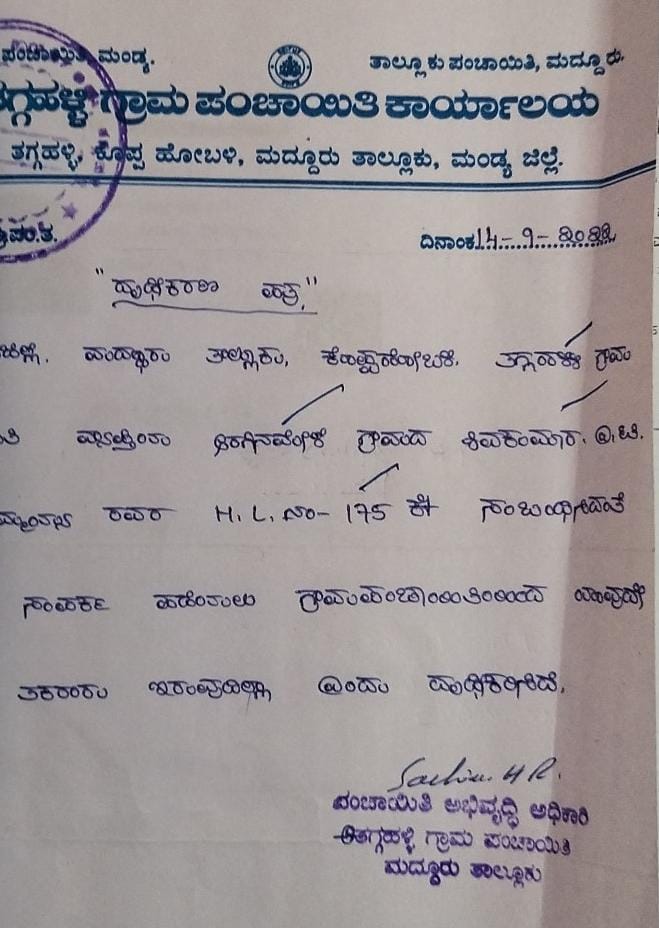 ಪಂಚಾಯಿತಿ, ಮಂಡ್ಯ.
ತಾಲ್ಲೂಕು ಪಂಚಾಯಿತಿ, ಮದ್ದೂರು.
ತಗ್ಗಹಳ್ಳಿ ಗ್ರಾಮ ಪಂಚಾಯಿತಿ ಕಾರ್ಯಾಲಯ
ತಗ್ಗಹಳ್ಳಿ, ಕೊಪ್ಪ ಹೋಬಳಿ, ಮದ್ದೂರು ತಾಲ್ಲೂಕು, ಮಂಡ್ಯ ಜಿಲ್ಲೆ.
ದಿನಾಂಕ 14-9-2022
"ದೃಢೀಕರಣ ಪತ್ರ"
ಜಿಲ್ಲೆ, ಮದ್ದೂರು ತಾಲ್ಲೂಕು, ಗ್ರಾಮ
ಗ್ರಾಮದ ಶಿವಕುಮಾರ.
ರವರ H. L. ನಂ- 175 ಕ್ಕೆ ಸಂಬಂಧಿಸಿದಂತೆ
ಸಂಪರ್ಕ ಪಡೆಯಲು ಗ್ರಾಮಪಂಚಾಯಿತಿಯಿಂದ ಯಾವುದೇ
ತಕರಾರು ಇರುವುದಿಲ್ಲ ಎಂದು ದೃಢೀಕರಿಸಿದೆ.
Sachin. H R.
ಪಂಚಾಯಿತಿ ಅಭಿವೃದ್ಧಿ ಅಧಿಕಾರಿ
ತಗ್ಗಹಳ್ಳಿ ಗ್ರಾಮ ಪಂಚಾಯಿತಿ
ಮದ್ದೂರು ತಾಲ್ಲೂಕು